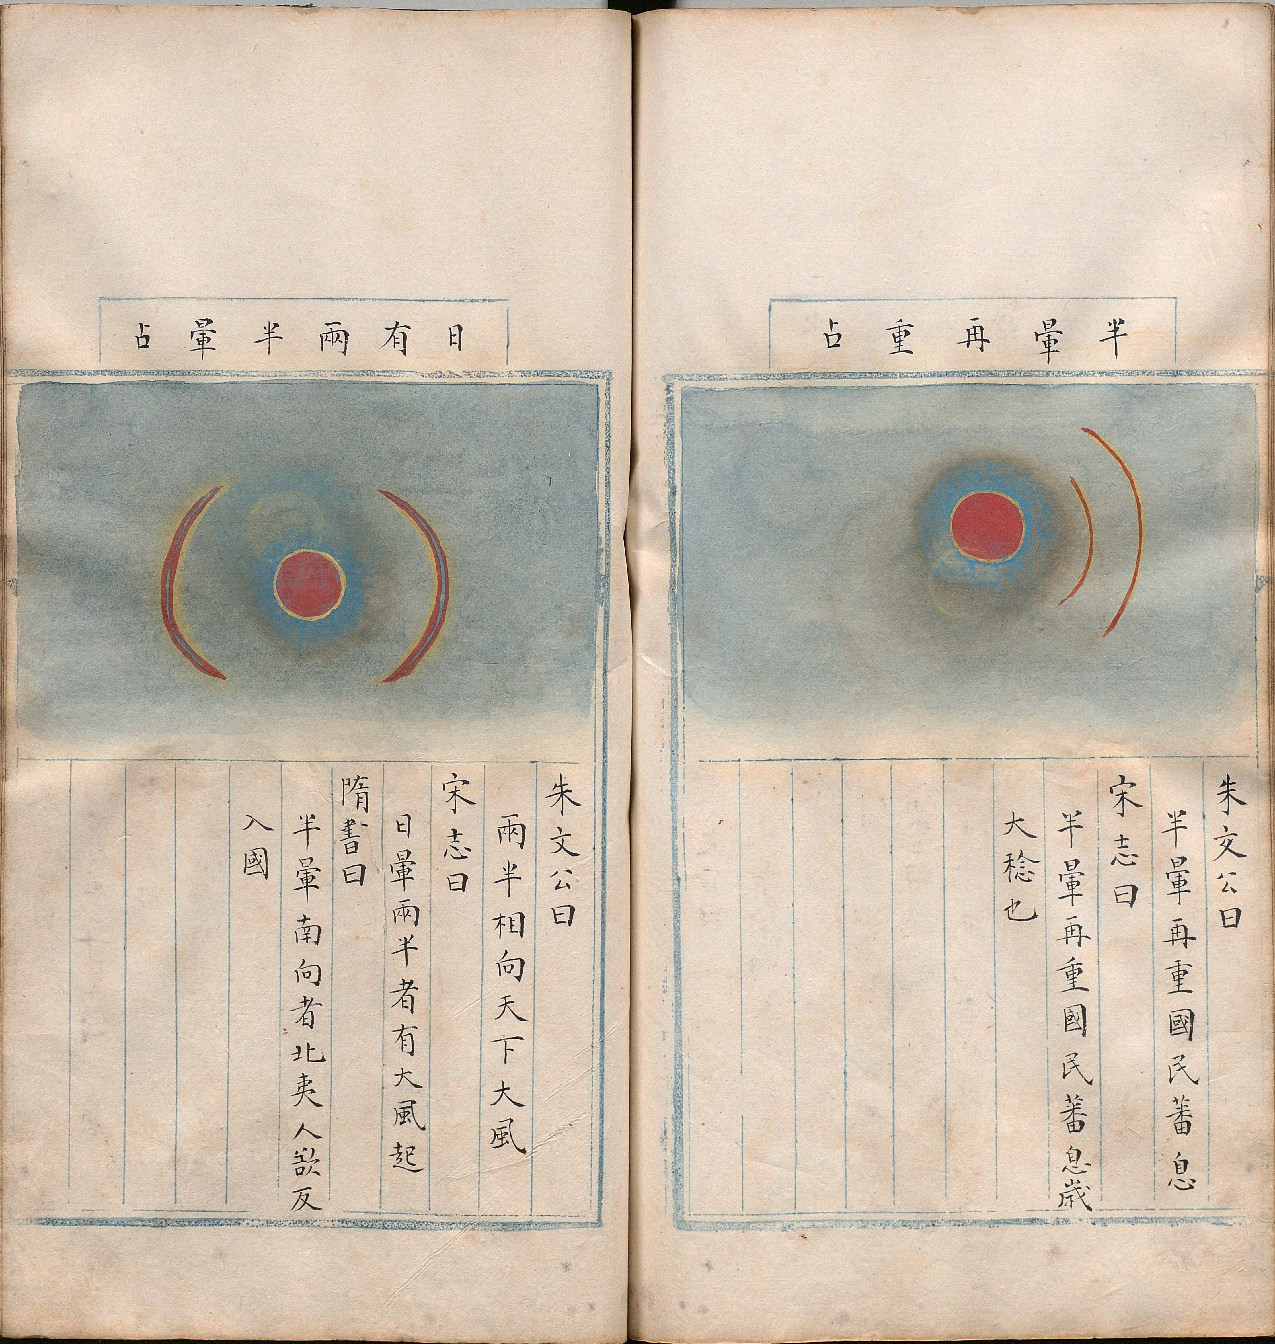 半暈再重占
朱文公曰
半暈再重國民蕃息
宋志曰
半暈再重國民蕃息歲
大稔也
日有兩半暈占
朱文公曰
兩半相向天下大風
宋志曰
日暈兩半者有大風起
隋書曰
半暈南向者北夷人欲反
入國